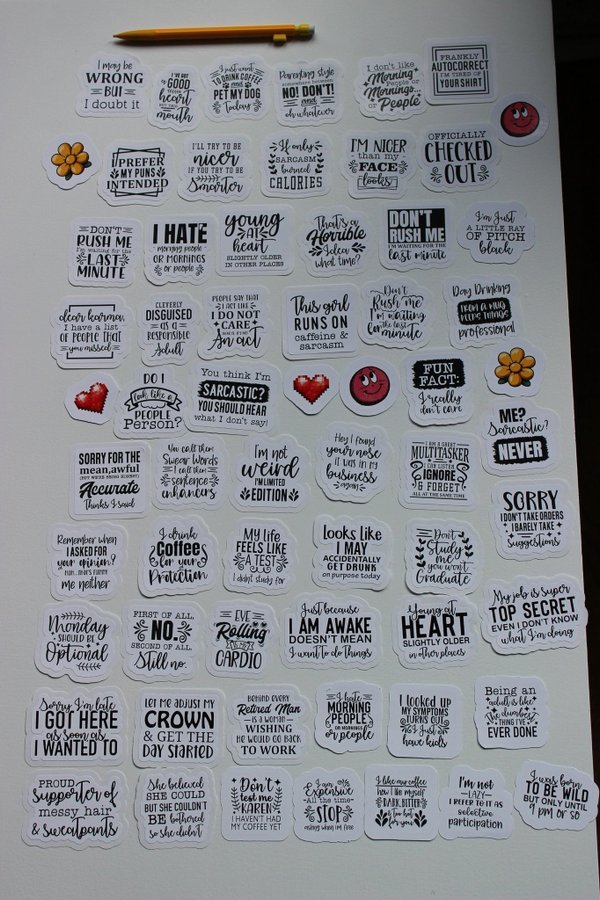 I may be
WRONG
BUT
I doubt it
I'VE GOT
GOOD
heart
mouth
I just want
TO DRINK COFFEE
and
PET MY DOG
Today
Parenting style
NO! DON'T!
and
oh whatever
I don't like
Morning
People or
Mornings...
or
People
FRANKLY
AUTOCORRECT
I'M TIRED OF
YOUR SHIRT
I PREFER
MY PUNS
INTENDED
I'LL TRY TO BE
nicer
IF YOU TRY TO BE
Smarter
If only
SARCASM
burned
CALORIES
I'M NICER
than my
FACE
looks
OFFICIALLY
CHECKED
OUT
DON'T
RUSH ME
I'm waiting for the
LAST
MINUTE
I HATE
morning people
OR MORNINGS
or people
young
AT
heart
SLIGHTLY OLDER
IN OTHER PLACES
That's a
Horrible
Idea
what time?
DON'T
RUSH ME
I'M WAITING FOR THE
last minute
I'm Just
A LITTLE RAY
OF PITCH
black
dear karma,
I have a list
OF PEOPLE THAT
you missed
CLEVERLY
DISGUISED
as a
RESPONSIBLE
Adult
PEOPLE SAY THAT
I ACT LIKE
I DO NOT
CARE
An act
This girl
RUNS ON
caffeine &
sarcasm
Don't
Rush me
I'm waiting
for the last
minute
Day Drinking
FROM A MUG
KEEPS THINGS
professional
DO I
look like a
PEOPLE
Person?
You think I'm
SARCASTIC?
YOU SHOULD HEAR
what I don't say!
FUN
FACT:
I really
don't care
ME?
Sarcastic?
NEVER
SORRY FOR THE
mean, awful
Accurate
Thinks I said
You call them
Swear Words
I call them
sentence
enhancers
I'm not
weird
I'M LIMITED
EDITION
Hey I found
your nose
IT WAS IN MY
business
again
I AM A GREAT
MULTITASKER
I CAN LISTEN
IGNORE
& FORGET
ALL AT THE SAME TIME
SORRY
I DON'T TAKE ORDERS
I BARELY TAKE
suggestions
Remember when
I ASKED FOR
your opinion?
me neither
I drink
Coffee
for your
Protection
My life
FEELS LIKE
A TEST
I didn't study for
Looks like
I MAY
ACCIDENTALLY
GET DRUNK
on purpose today
Don't
Study
me
you won't
Graduate
My job is super
TOP SECRET
EVEN I DON'T KNOW
what I'm doing
Monday
SHOULD BE
Optional
FIRST OF ALL,
NO.
SECOND OF ALL,
Still no.
EYE
Rolling
IS MY
CARDIO
Just because
I AM AWAKE
DOESN'T MEAN
I want to do Things
Young at
HEART
SLIGHTLY OLDER
in other places
Sorry I'm late
I GOT HERE
as soon as
I WANTED TO
LET ME ADJUST MY
CROWN
& GET THE
DAY STARTED
BEHIND EVERY
Retired Man
IS A WOMAN
WISHING
HE WOULD GO BACK
TO WORK
I hate
MORNING
PEOPLE
OR MORNINGS
or people
I looked up
MY SYMPTOMS
TURNS OUT
I Just
have kids
Being an
adult is like
The dumbest
THING I'VE
EVER DONE
PROUD
supporter of
messy hair
& sweatpants
She believed
SHE COULD
BUT SHE COULDN'T
BE bothered
so she didn't
Don't
test me
KAREN
I HAVEN'T HAD
MY COFFEE YET
I am
Expensive
All the time
STOP
asking when im free
I like my coffee
how I like myself
DARK, BITTER
& Too hot
for you
I'm not
LAZY
I REFER TO IT AS
selective
participation
I was born
TO BE WILD
BUT ONLY UNTIL
9 pm or so